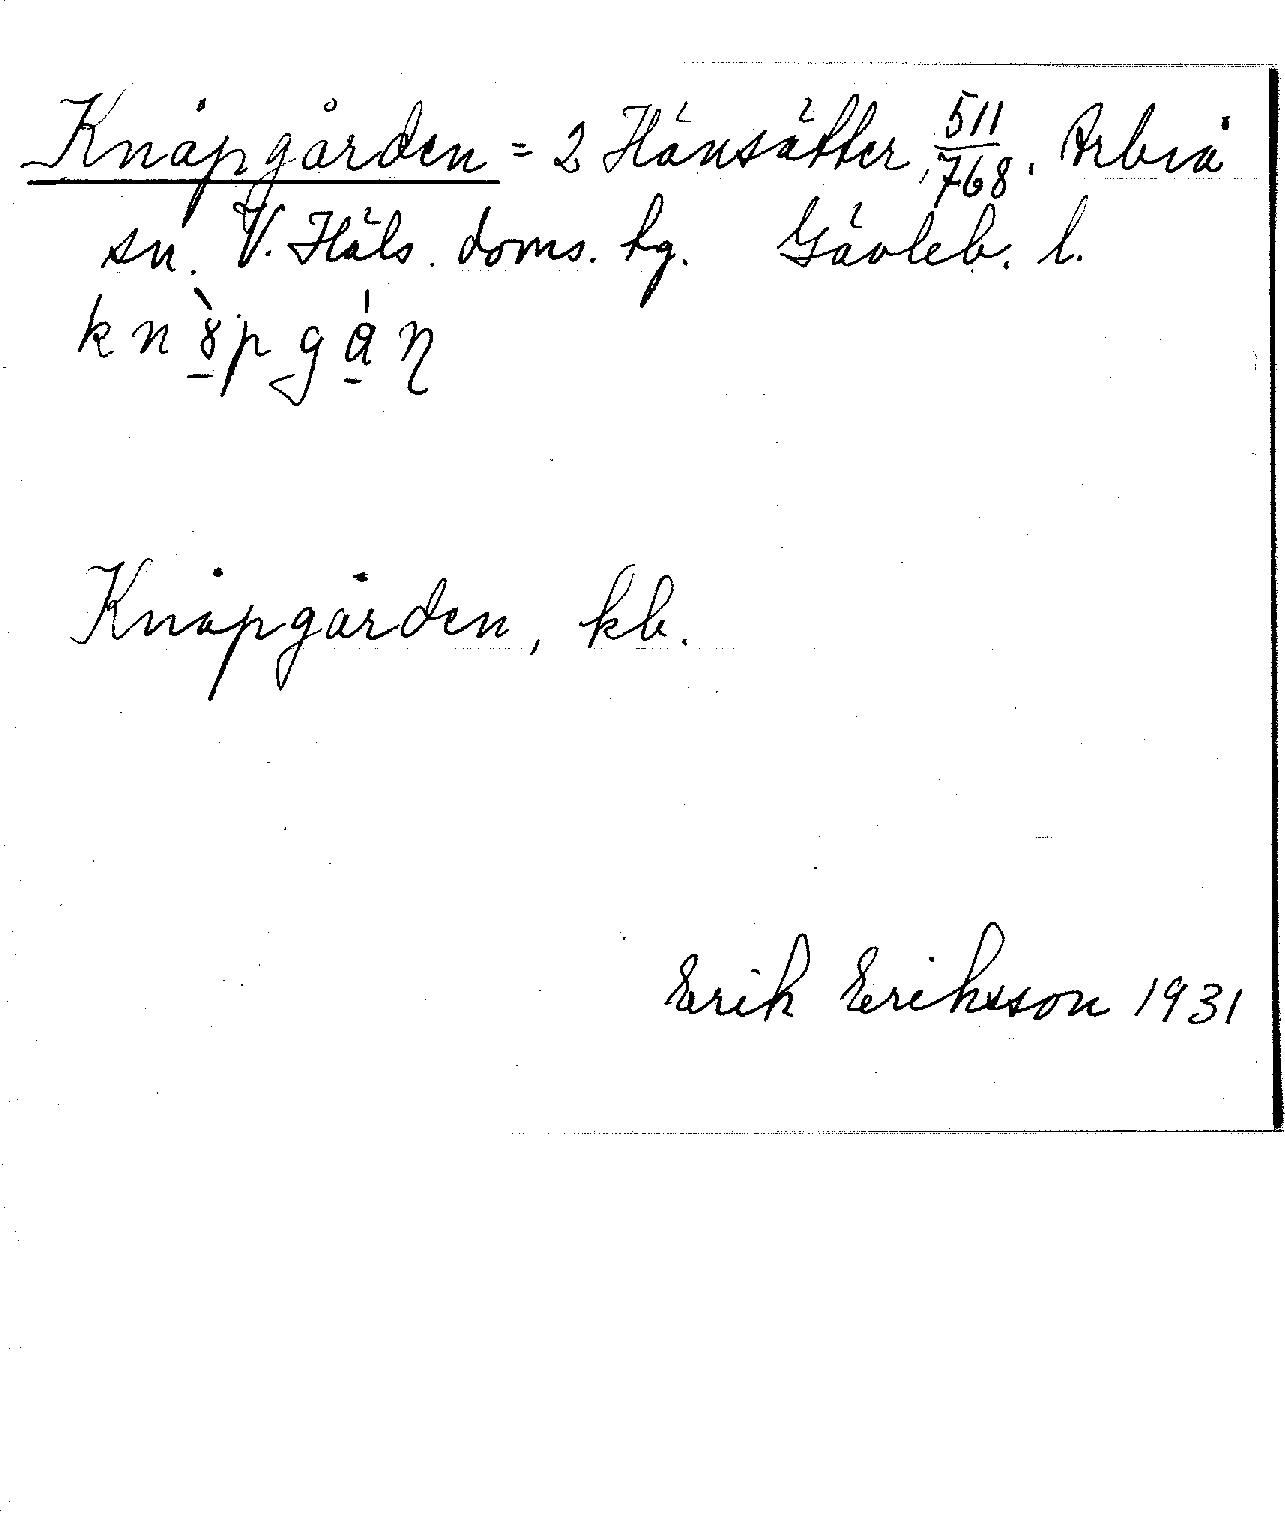 Knåpgården = 2 Hänsätter, 511/768. Arbrå
sn. V. Häls. doms. hg. Gävleb. l.
Knåpgården, kb.
Erik Eriksson 1931